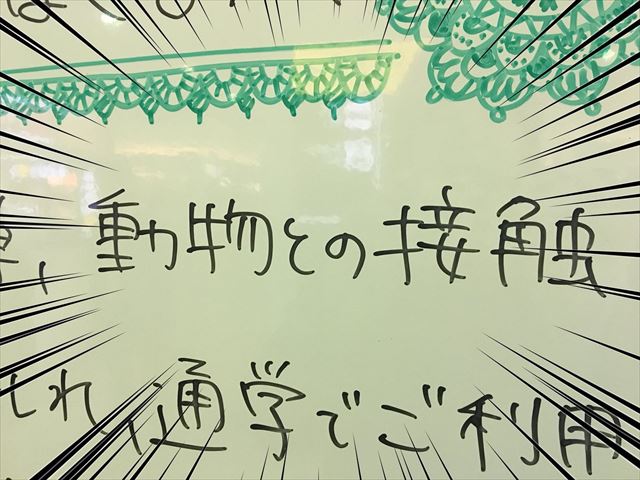 動物との接触
通学でご利用